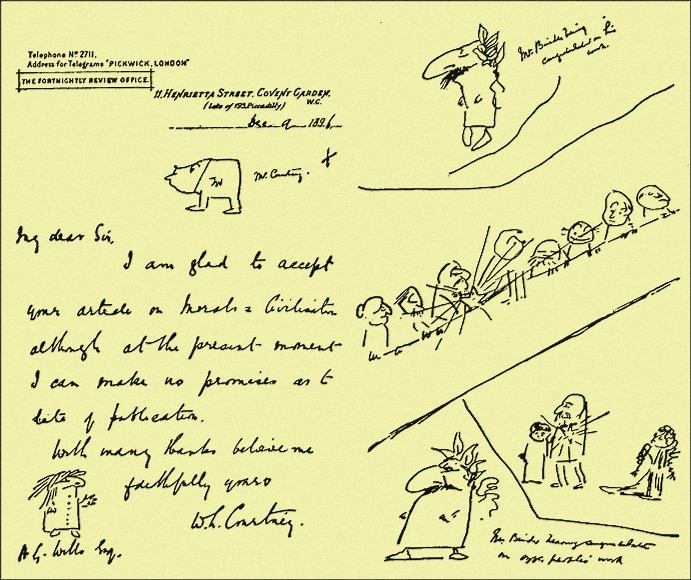 Telephone Nº 2711,
Address for Telegrams "PICKWICK, LONDON"
THE FORTNIGHTLY REVIEW OFFICE.
11, HENRIETTA STREET, COVENT GARDEN,
W.C.
(Late of 193, Piccadilly)
Dec 9 1896
Mr. Courtney.
My dear Sir,
I am glad to accept
your article on Morals & Civilisation
although at the present moment
I can make no promises as to
date of publication.
With many thanks believe me
faithfully yours
W.L. Courtney.
H.G. Wells Esq.
Mr. Binder being
congratulated on his
work.
Mr. Binder hearing congratulations
on other people's work